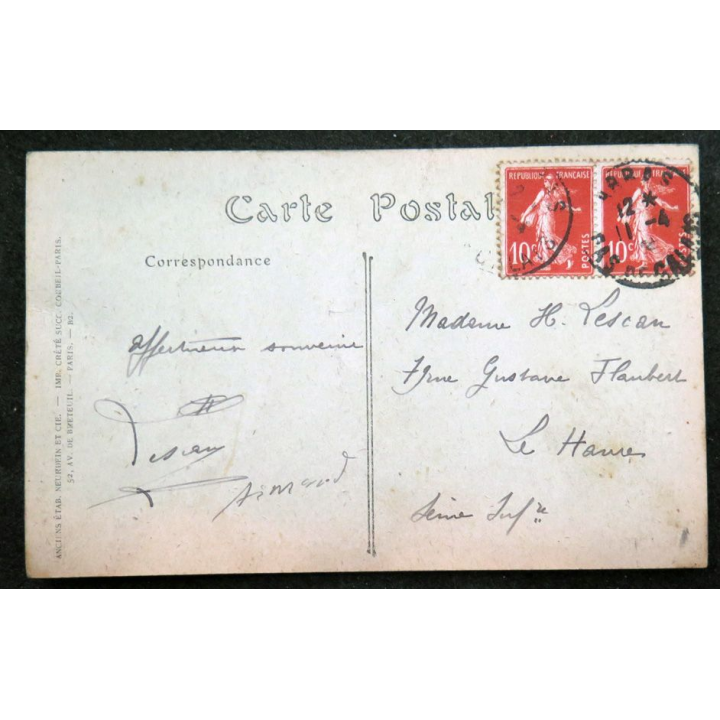 Carte Postale
Correspondance
RÉPUBLIQUE FRANÇAISE
10c
POSTES
RÉPUBLIQUE FRANÇAISE
10c
POSTES
ARRAS
12 *
11 -4
PAS DE CALAIS
affectueux souvenir
Lescan
Armand
Madame H. Lescan
rue Gustave Flaubert
Le Havre
Seine Infre
ANCIENS ÉTAB. NEURDEIN ET CIE. — IMP. CRÉTÉ SUCC. CORBEIL-PARIS.
52, AV. DE BRETEUIL. — PARIS. —